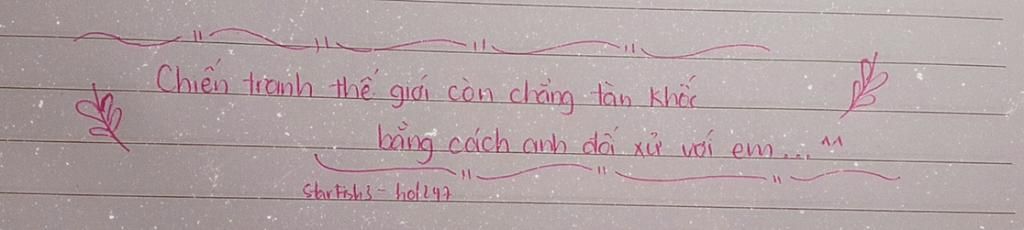 Chiến tranh thế giới còn chẳng tàn khốc
bằng cách anh đối xử với em... ^^